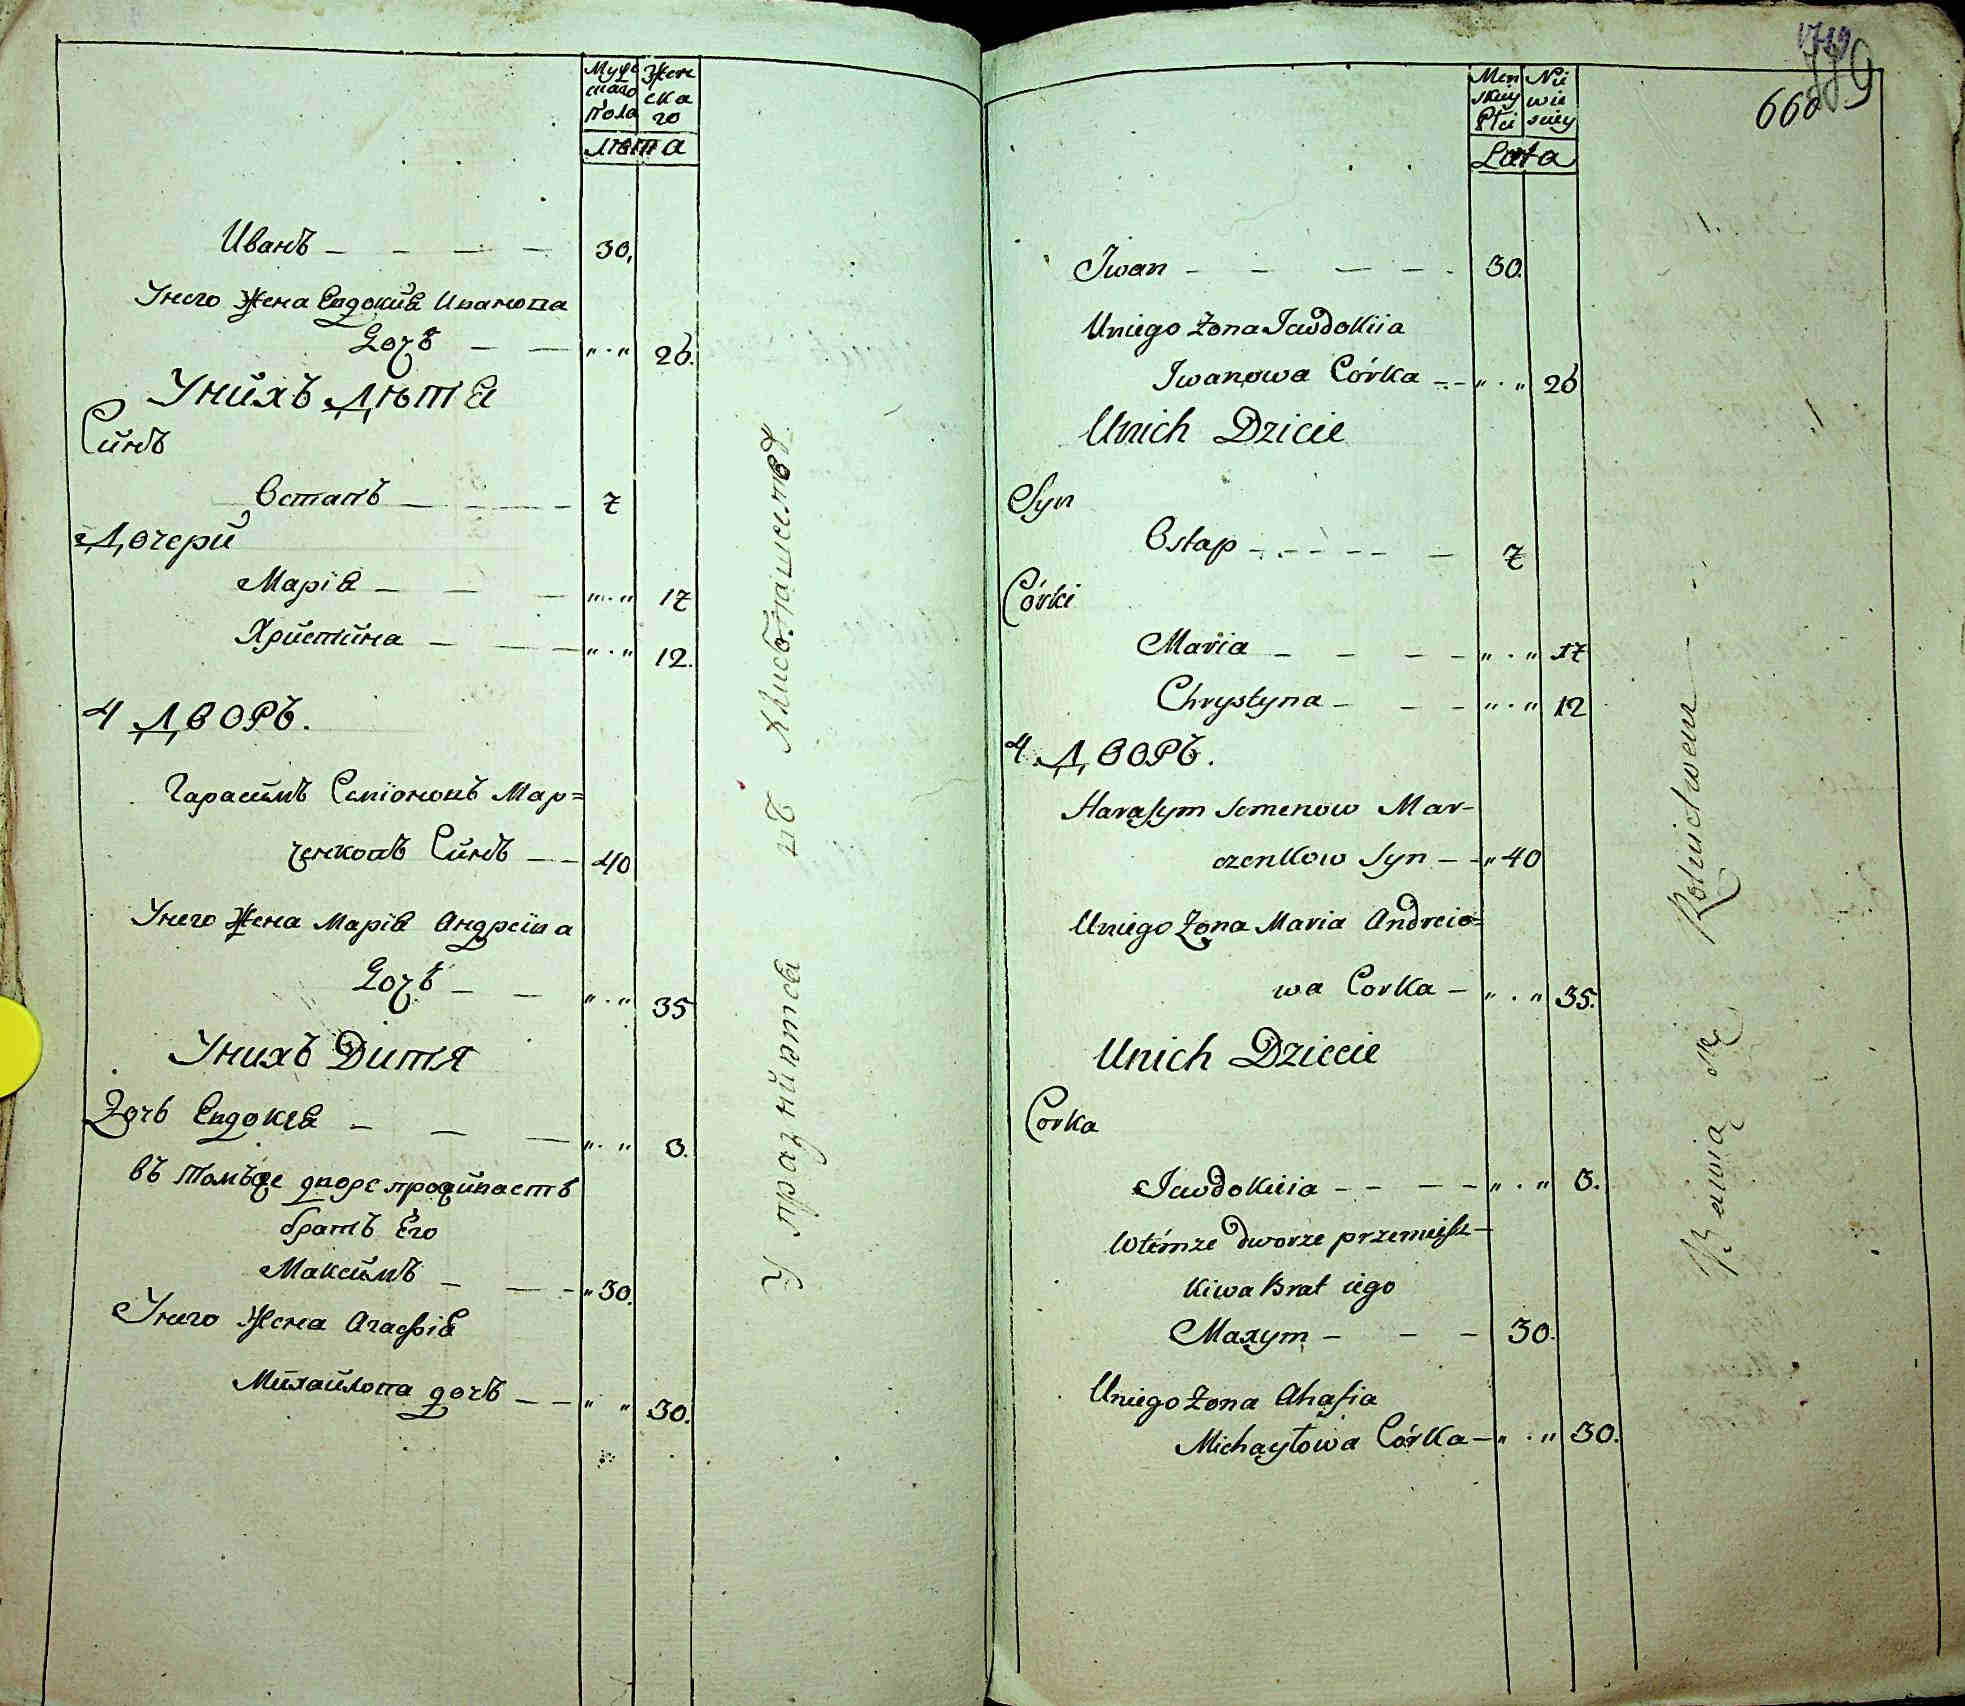 Муже Жен
скаго ска
Пола го
лѣта
Иванъ — — — — 30.
Унего Жена Евдокия Иванова
Дочь — — „ . „ 26.
Унихъ Дѣти
Синъ
Остапъ — — — — 7
Дочери
Марія — — — „ . „ 17
Христина — — — „ . „ 12.
4 ДВОРЪ.
Гарасимъ Семіоновъ Мар=
ченковъ Синъ — — 40
Унего Жена Марія Андреива
Дочь — — „ . „ 35
Унихъ Дитя
Дочь Евдокея — — — „ . „ 3.
въ томъже дворе проживаетъ
братъ Его
Максимъ — — — „ 30.
Унего Жена Агафія
Михайлова дочъ — — „ „ 30.
Упражняются въ Хлибопашествѣ
660
Men Nie
skiey wie
Płci sciey
Lata
Jwan — — — — 30.
Uniego Żona Jewdokiia
Jwanowa Córka — — „ . „ 26
Unich Dzicie
Syn
Ostap — — — — — 7
Córki
Maria — — — — „ . „ 17
Chrystyna — — — „ . „ 12
4 ДВОРЪ.
Harasym Semenow Mar-
czenkow Syn — — „ 40
Uniego Żona Maria Andreio=
wa Corka — „ . „ 35.
Unich Dziecie
Corka
Jewdokiia — — — — „ . „ 3.
Wtémze dworze przemiesz-
kiwa Brat iego
Maxym — — — 30.
Uniego Żona Ahafia
Michayłowa Córka — „ . „ 30.
Bawią się Rolnictwem